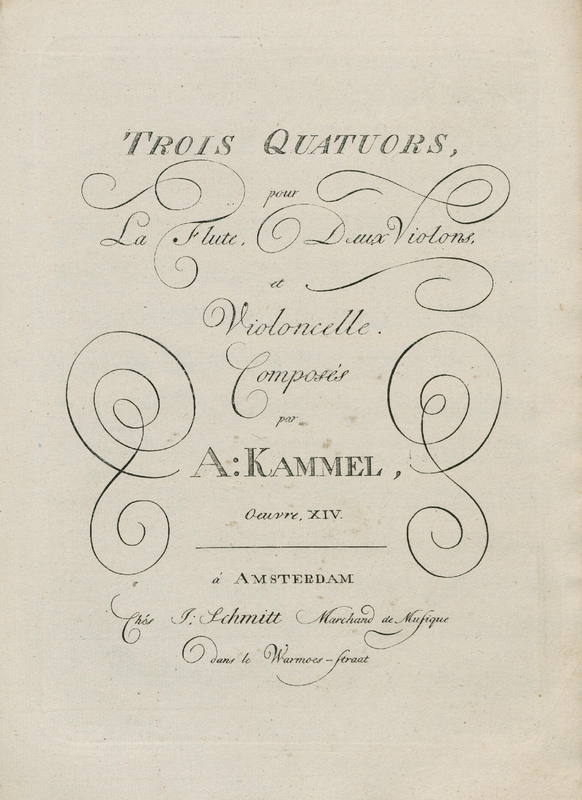 TROIS QUATUORS,
pour
La Flute, Deux Violons,
et
Violoncelle.
Composés
par
A: KAMMEL,
Oeuvre, XIV.
á AMSTERDAM
Chés J: Schmitt Marchand de Musique
dans le Warmoes-straat